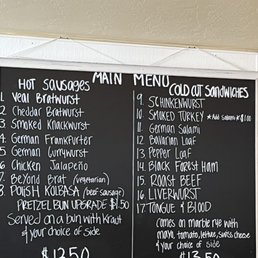 MAIN MENU
HOT SAUSAGES
1. Veal Bratwurst
2. Cheddar Bratwurst
3. Smoked Knackwurst
4. German Frankfurter
5. German Currywurst
6. Chicken Jalapeño
7. Beyond Brat (vegetarian)
8. Polish Kolbasa (beef sausage)
PRETZEL BUN UPGRADE $1.50
Served on a bun with Kraut
& your choice of side
$13.50
COLD CUT SANDWICHES
9. SCHINKENWURST
10. SMOKED TURKEY *Add Salami $1.00
11. German Salami
12. Bavarian Loaf
13. Pepper Loaf
14. Black Forest Ham
15. ROAST BEEF
16. LIVERWURST
17. TONGUE & BLOOD
comes on marble rye with
mayo, tomato, lettuce, swiss cheese
& your choice of side
$13.50